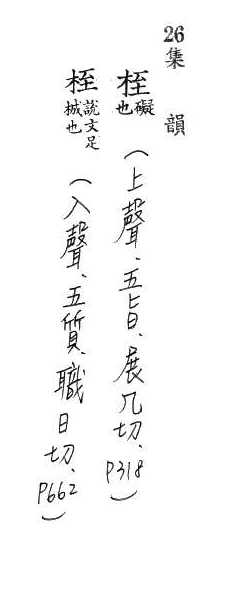 26集韻
桎礙也(上聲、五旨、展几切、P318)
桎說文足械也(入聲、五質、職日切、P662)